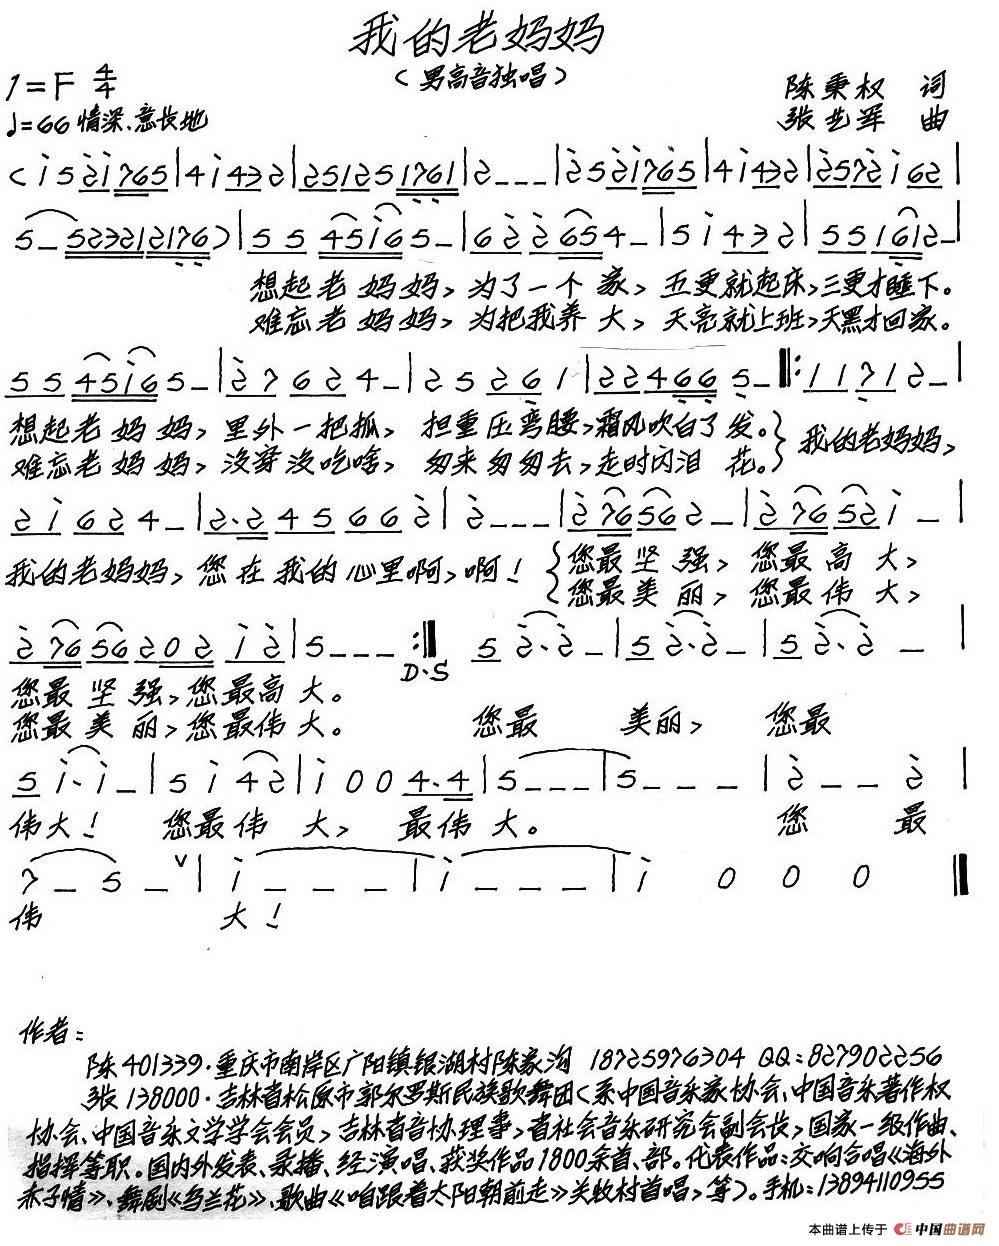 我的老妈妈
(男高音独唱)
1=F 4/4
陈秉权 词
♩=66 情深、意长地
张艺军 曲
想起老妈妈,为了一个家,五更就起床,三更才睡下。
难忘老妈妈,为把我养大,天亮就上班,天黑才回家。
想起老妈妈,里外一把抓,担重压弯腰,霜风吹白了发。
难忘老妈妈,没穿没吃啥,匆来匆匆去,走时闪泪花。
我的老妈妈,
我的老妈妈,您在我的心里啊,啊!
您最坚强,您最高大,
您最美丽,您最伟大,
D.S
您最坚强,您最高大。
您最美丽,您最伟大。 您最美丽,您最
伟大! 您最伟大,最伟大。 您最
伟大!
作者:
陈401339·重庆市南岸区广阳镇银湖村陈家沟 18725976304 QQ:827902256
张138000·吉林省松原市郭尔罗斯民族歌舞团(系中国音乐家协会、中国音乐著作权
协会、中国音乐文学学会会员,吉林省音协理事,省社会音乐研究会副会长,国家一级作曲、
指挥等职。国内外发表、录播、经演唱、获奖作品1800余首、部。代表作品:交响合唱《海外
赤子情》、舞剧《乌兰花》、歌曲《咱跟着太阳朝前走》关牧村首唱,等)。手机:13894110955
本曲谱上传于 中国曲谱网